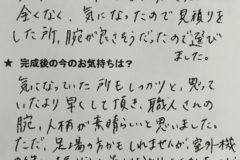 全くなく、気になったので見積りを
した所、腕が良さそうだったので選び
ました。
★ 完成後の今のお気持ちは？
気になっていた所もしっかりと、思って
いたより早くして頂き、職人さんの
腕、人柄が素晴らしいと思いました。
ただ、足場の方かもしれませんが、室外機